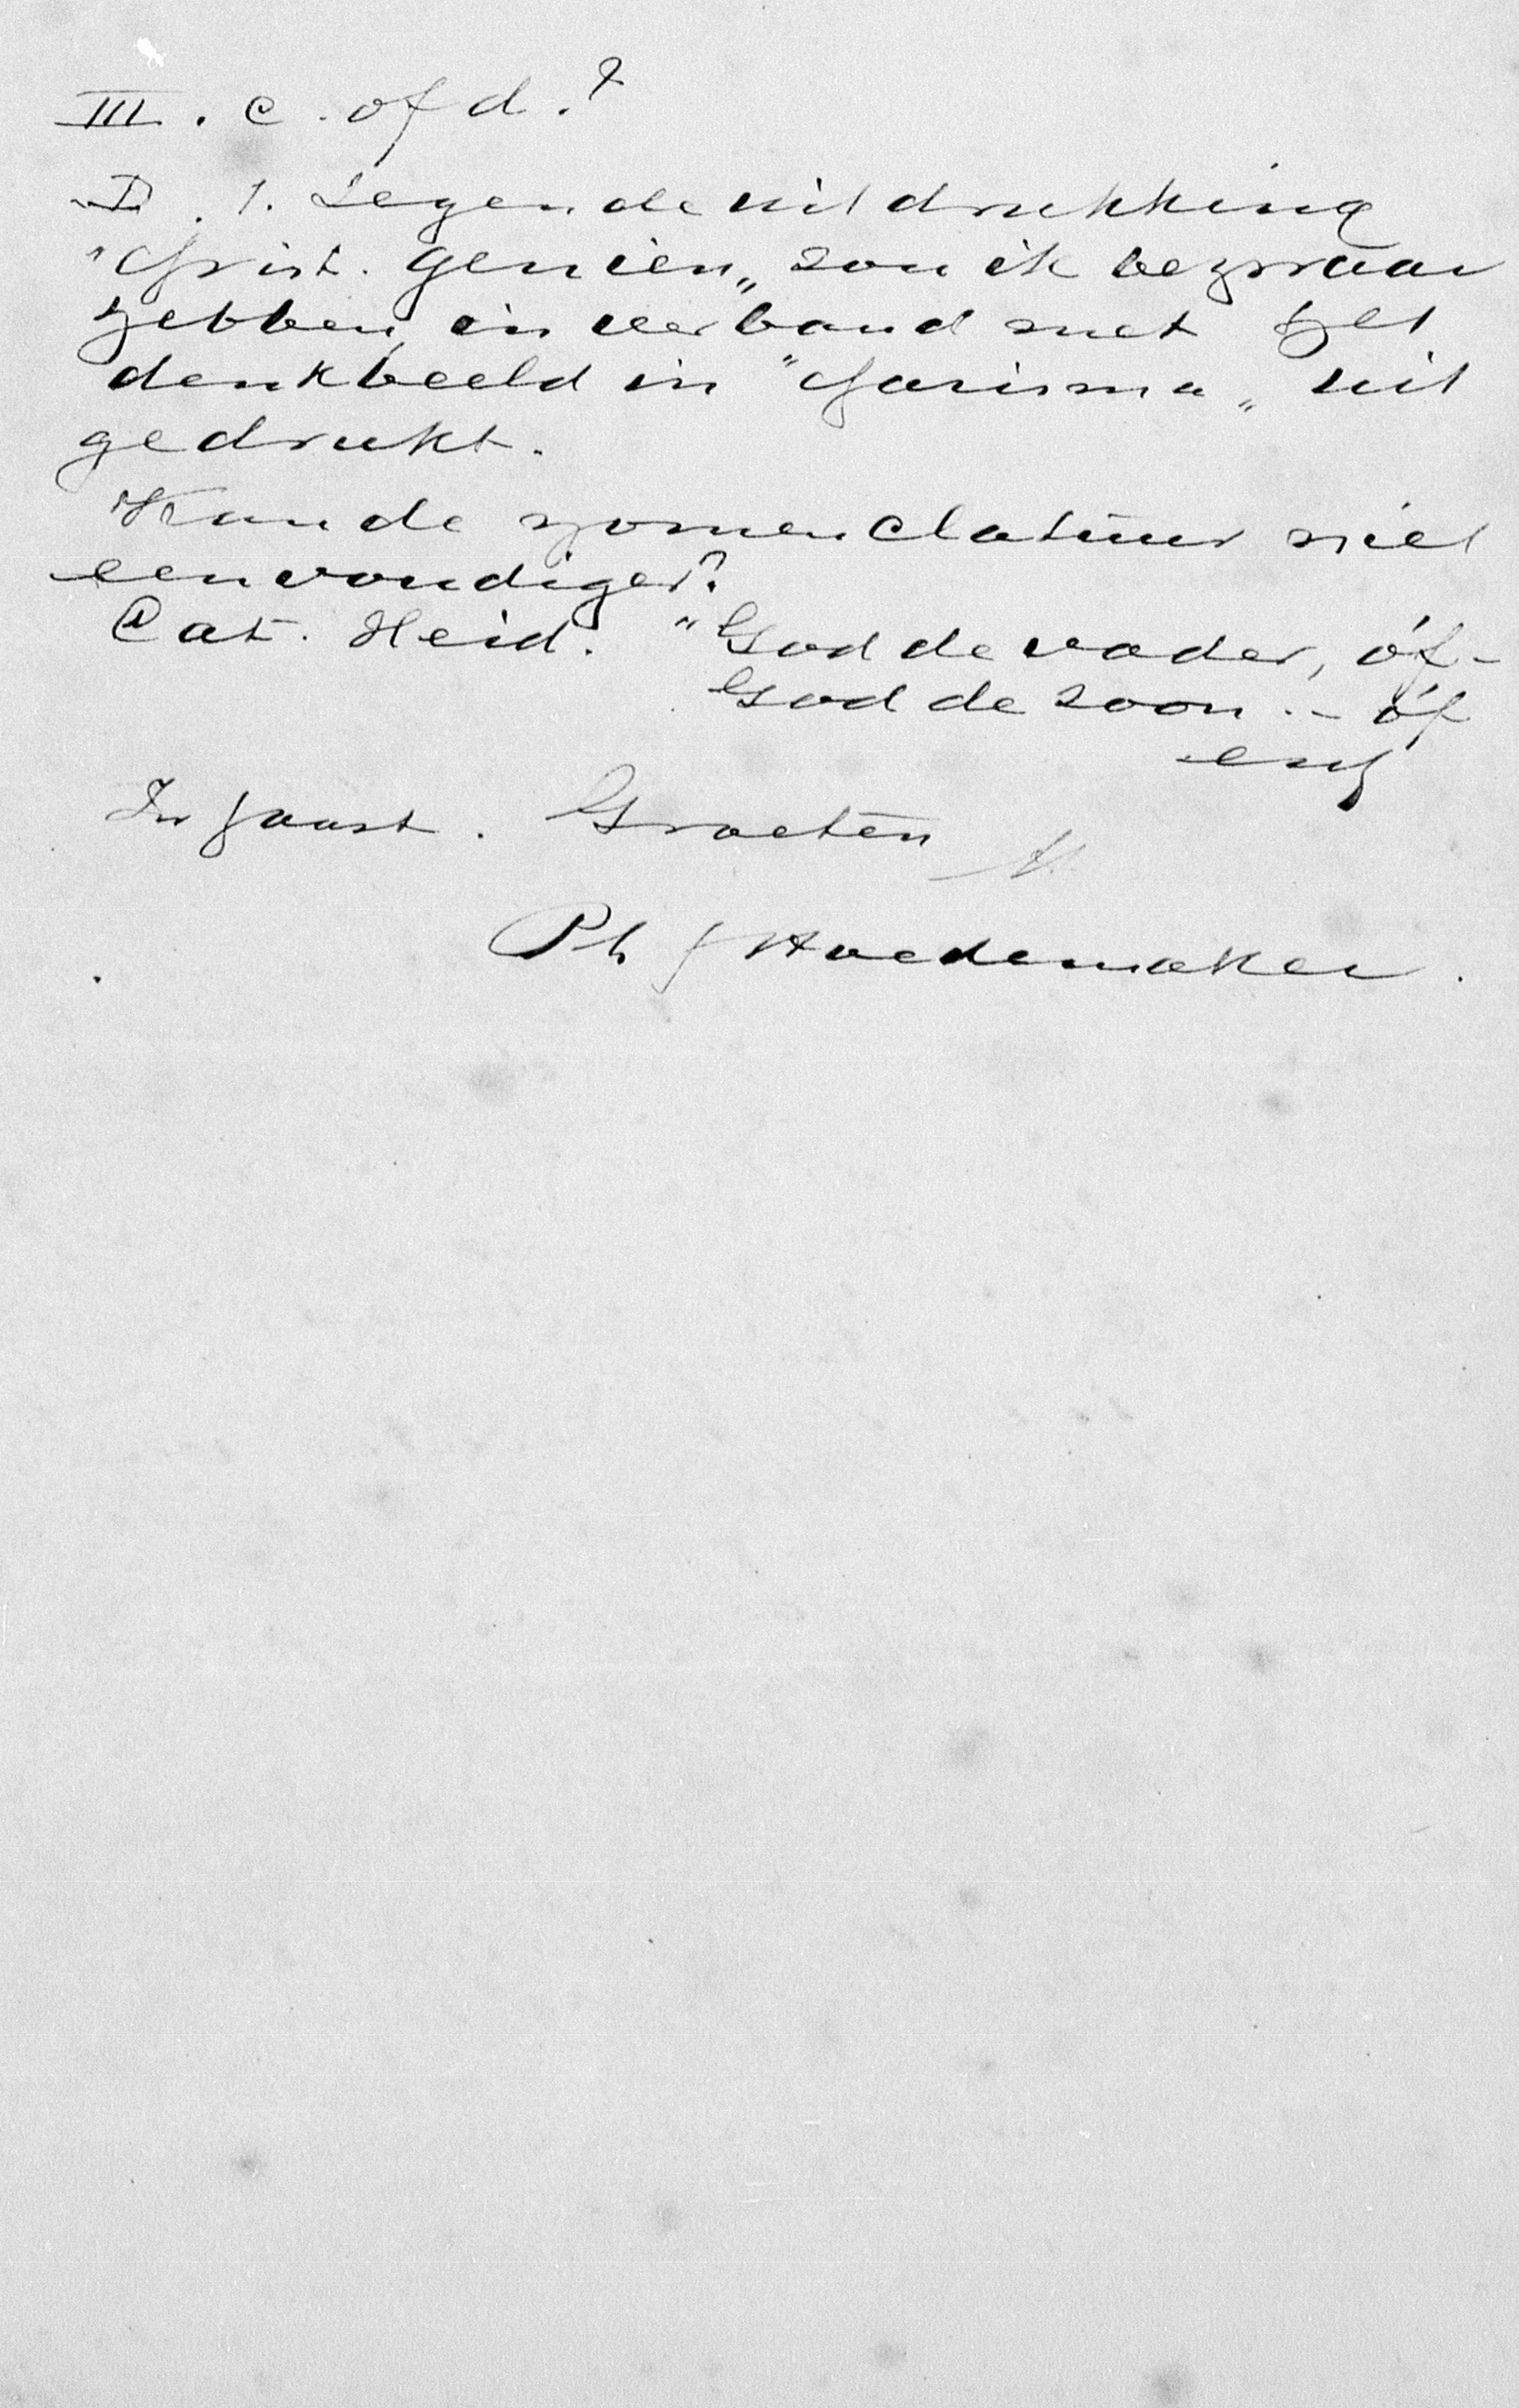 III. c. of d.?
I. 1. Tegen de uitdrukking
"Christ. Genieën" zou ik bezwaar
hebben, in verband met het
denkbeeld in "Charisma" uit
gedrukt.
Kan de nomenclatuur niet
eenvoudiger?
Cat. Heid. "God de vader, óf -
God de zoon. - óf
enz
In haast. Groeten
Ph J Hoedemaker.